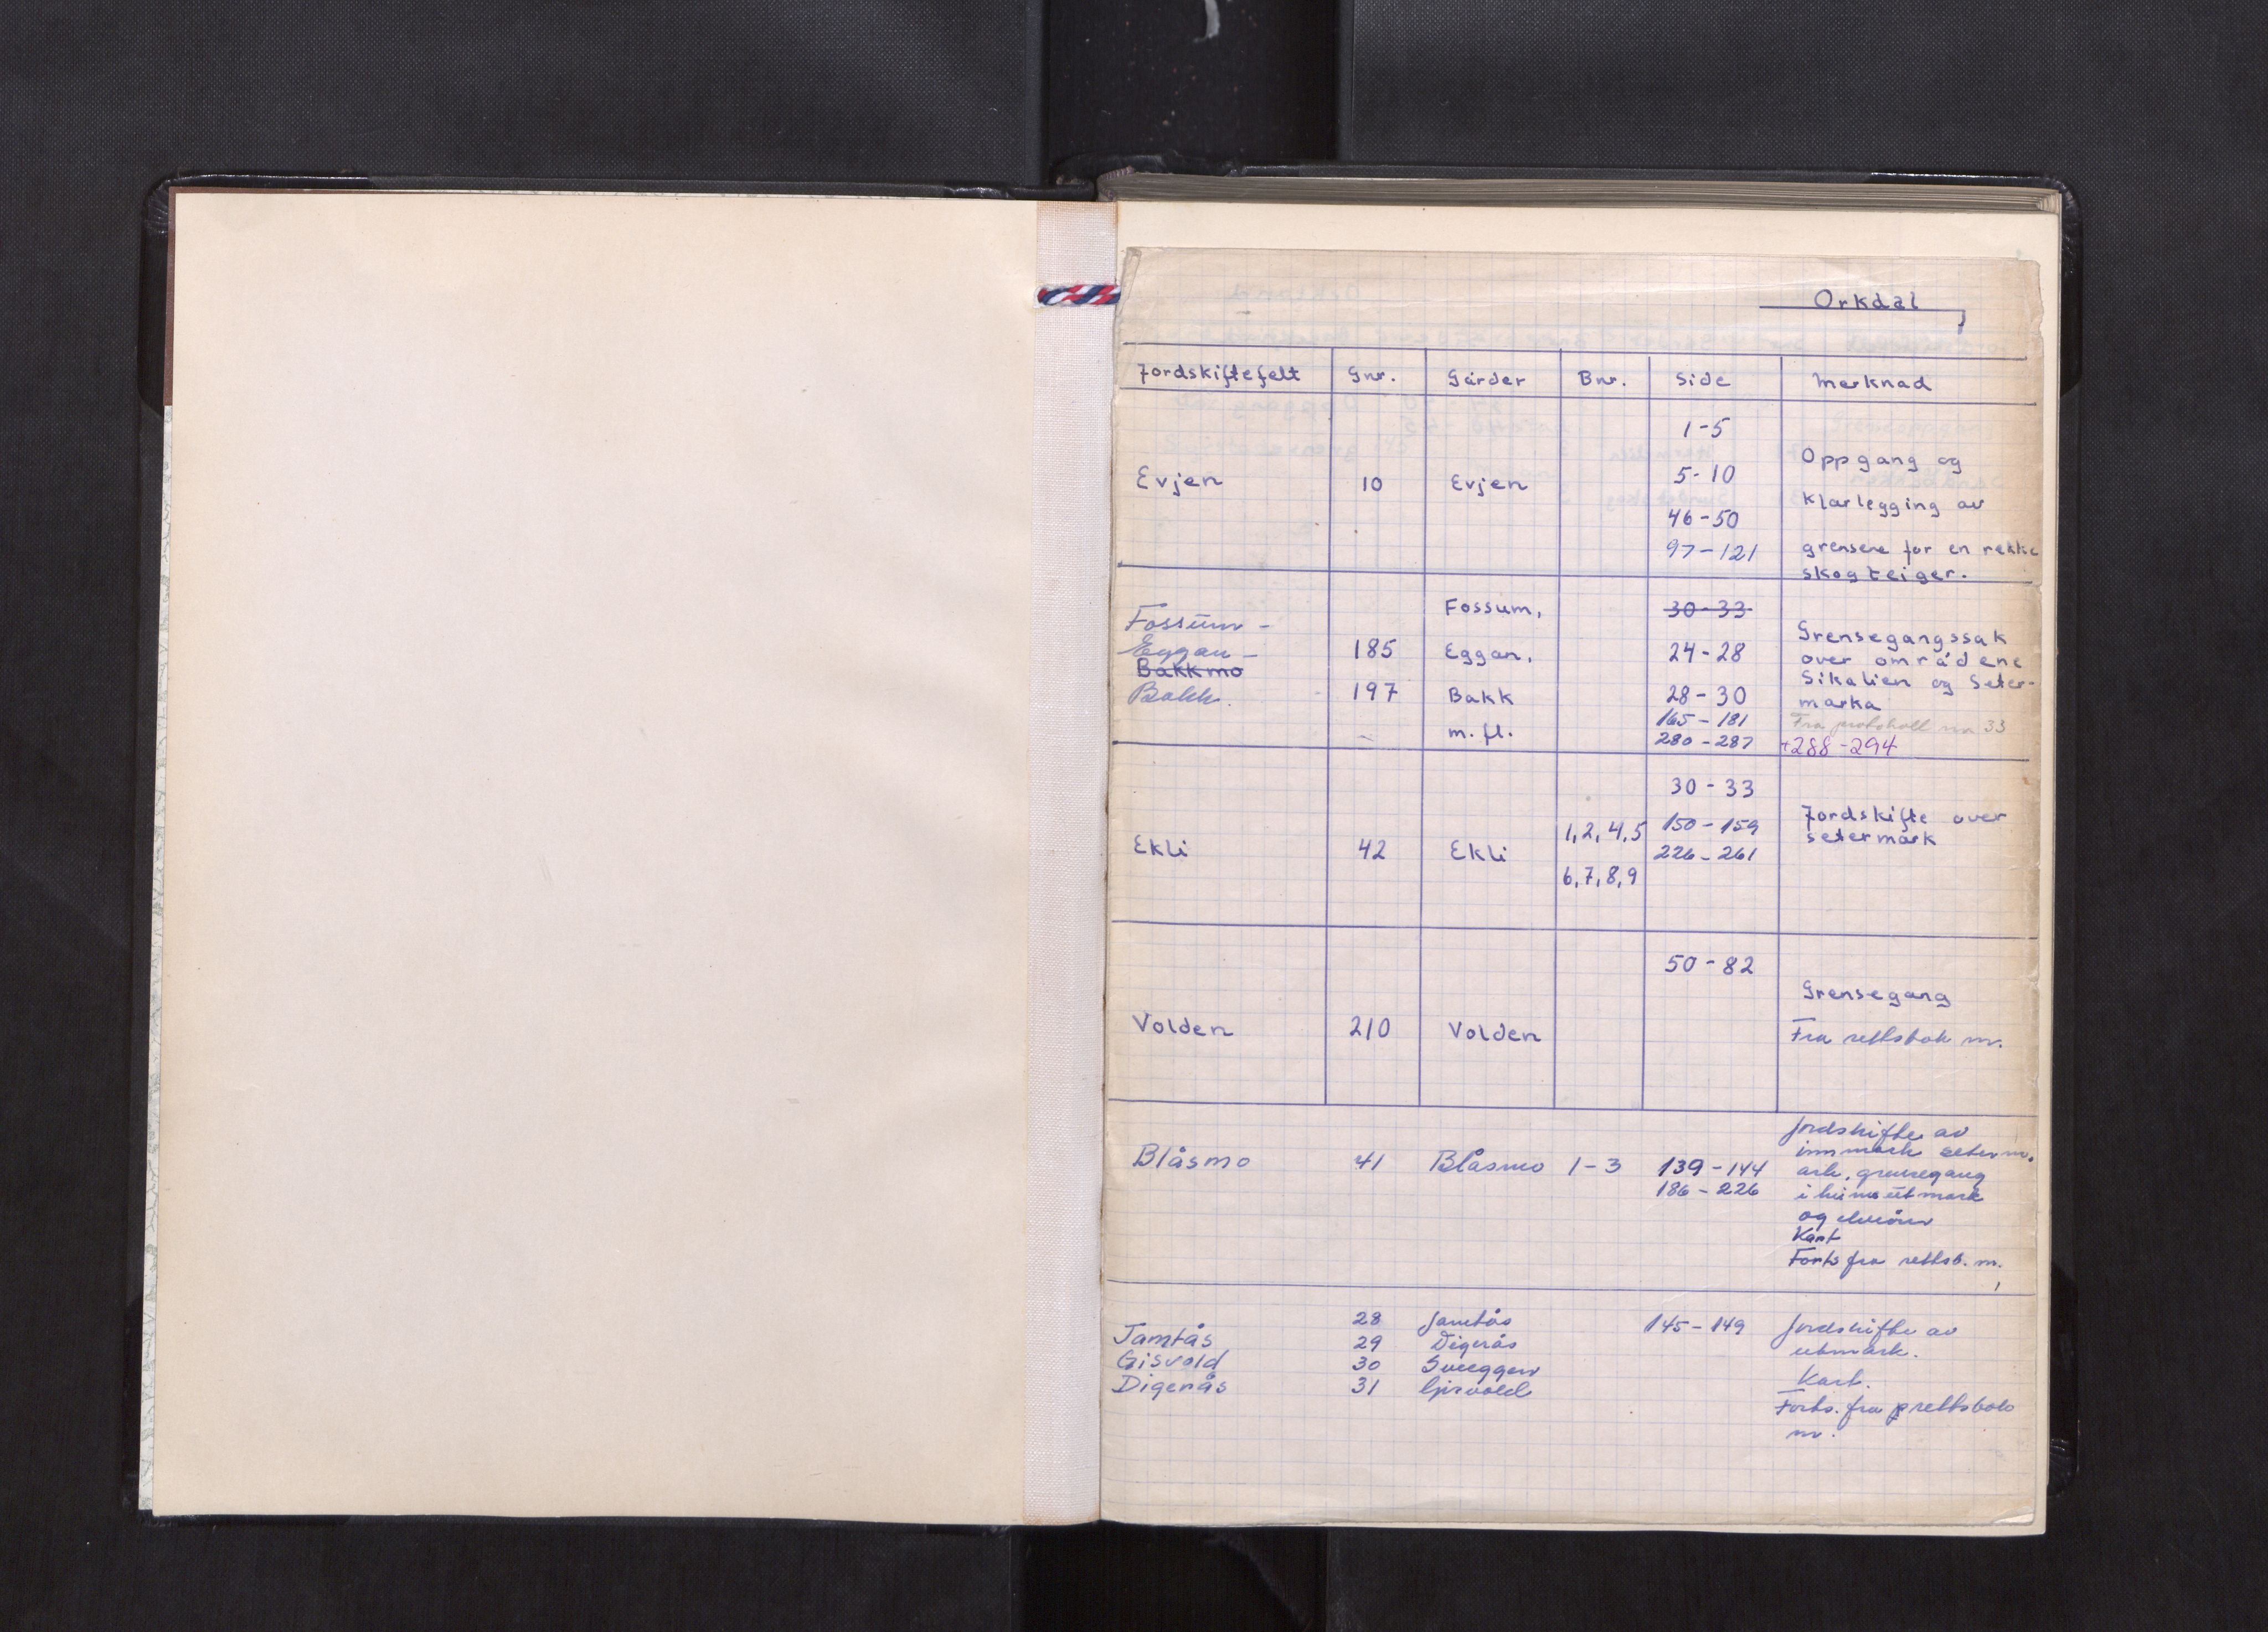 Orkdal
Jordskiftefelt Gnr. Gårder Bnr. Side Merknad
1-5
Evjen 10 Evjen 5-10 Oppgang og
46-50 klarlegging av
97-121 grensene for en rekke
skogteiger.
Fossum- Fossum, 30-33 Grensegangssak
Eggan- 185 Eggan, 24-28 over områdene
Bakkmo Sikalien og Seter-
Bakk. 197 Bakk 28-30 marka
165-181 Fra protokoll nr 33
m.fl. 280-287 +288-294
30-33
1,2,4,5 150-159 Jordskifte over
Ekli 42 Ekli 226-261 setermark
6,7,8,9
50-82
Grensegang
Volden 210 Volden Fra rettsbok nr.
Jordskifte av
Blåsmo 41 Blåsmo 1-3 139-144 innmark seterm.
186-226 ark, grensegang
i utmark
og
Kart
Forts fra rettsb. nr.
28 Jamtås 145-149 Jordskifte av
Jamtås 29 Digerås utmark.
Gisvold 30
Digerås 31 Gjisvold Kart.
Forts. fra rettsbok
nr.